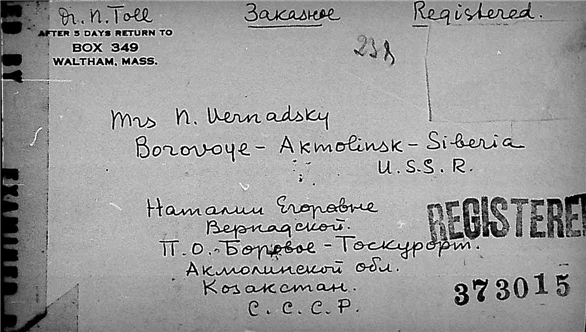 Dr. N. Toll
Заказное
Registered.
AFTER 5 DAYS RETURN TO
BOX 349
WALTHAM, MASS.
Mrs N. Vernadsky
Borovoye - Akmolinsk - Siberia
U.S.S.R.
Наталии Егоровне
Вернадской.
П.О. Боровое - Госкурорт.
Акмолинской обл.
Козакстан.
С.С.С.Р.
REGISTERE
373015
D BY
EXAMINED